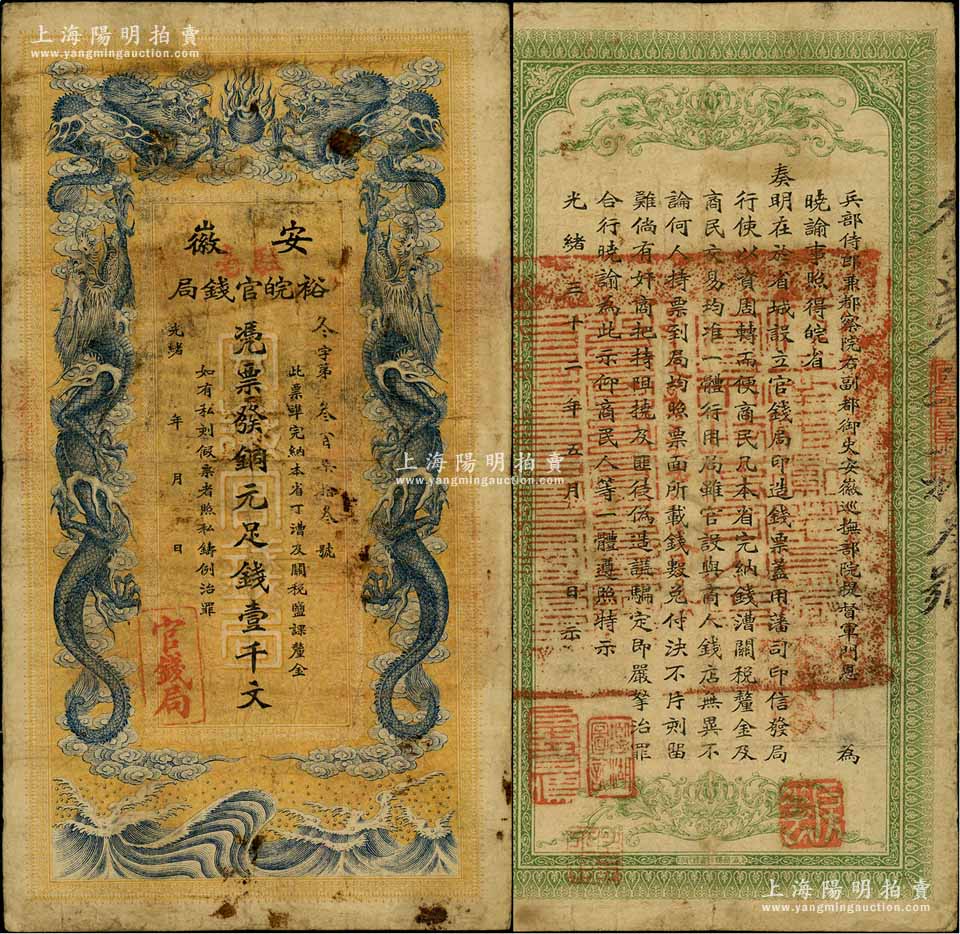 上海陽明拍賣
www.yangmingauction.com
安徽
裕皖官錢局
冬字第叁百柒拾叁號
此票準完納本省丁漕及關稅鹽課釐金
憑票發銅元足錢壹千文
如有私刻假票者照私鑄例治罪
光緒 年 月 日
官錢局
兵部侍郎兼都察院右副都御史安徽巡撫部院提督軍門恩 為
曉諭事照得皖省
奏明在於省城設立官錢局印造錢票蓋用藩司印信發局
行使以資周轉而便商民凡本省完納錢漕關稅釐金及
商民交易均准一體行用局雖官設與商人錢店無異不
論何人持票到局均照票面所載錢數兌付決不片刻留
難倘有奸商把持阻撓及匪徒偽造誆騙定即嚴拏治罪
合行曉諭為此示仰商民人等一體遵照特示
光緒三十二年五月 日示
上海陽明拍賣
www.yangmingauction.com
上海陽明拍賣
www.yangmingauction.com